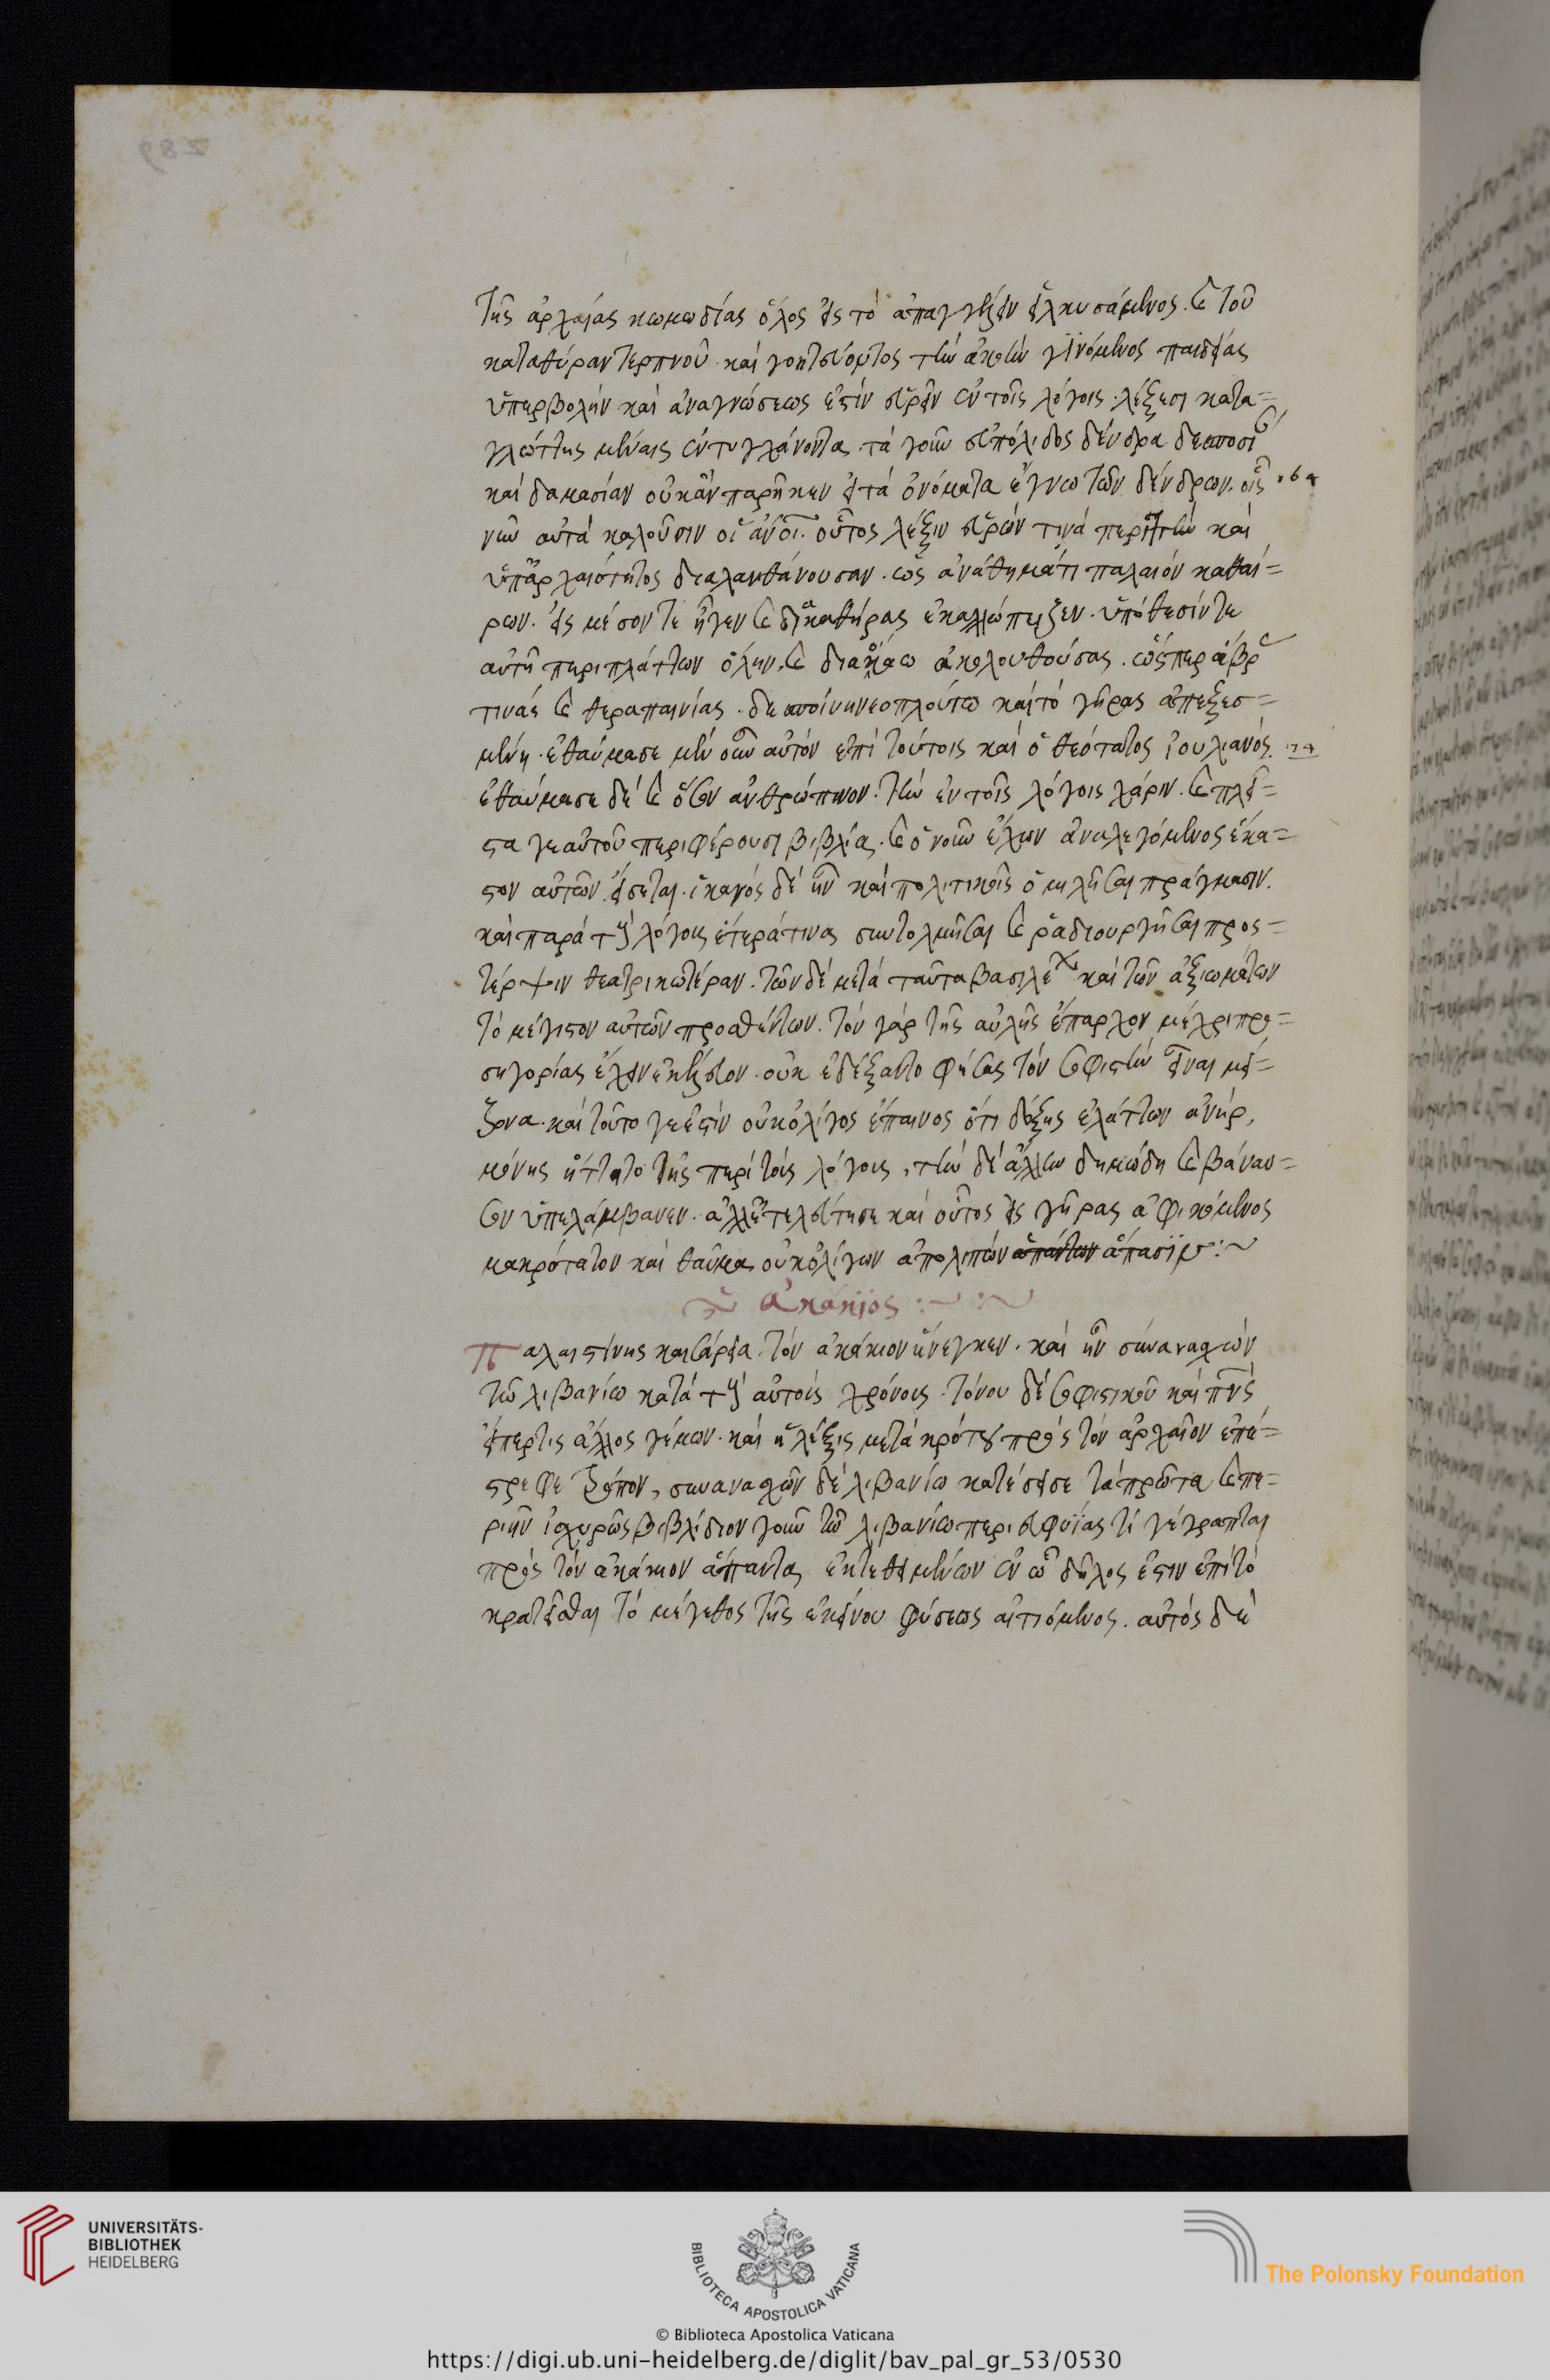 τῆς ἀρχαίας κωμωδίας ὅλος εἰς τὸ ἀπαγγέλλειν ἑλκυσάμενος. καὶ τοῦ
κατα θύραν τερπνοῦ καὶ γοητεύοντος τὴν ἀκοὴν γϊνόμενος παιδείας
ὑπερβολὴν καὶ ἀναγνώσεως ἐστὶν εὑρεῖν ἐν τοῖς λόγοις. λέξεσι κατα=
γλώττης μέναις ἐντυγχάνοντα. τὰ γοῦν εὐπόλιδος δένδρα
καὶ δαμασίαν οὐκ ἂν παρῆκεν εἰ τὰ ὀνόματα ἔγνω τῶν δένδρων. οἷς
νῦν αὐτὰ καλοῦσιν οἱ ἄνοι. οὗτος λέξιν εὑρών τινὰ περιττὴν καὶ
ὑπ' ἀρχαιότητος διαλανθάνουσαν. ὡς ἀνάθημά τι παλαιὸν καθαί=
ρων. εἰς μέσον τὲ ἦγεν καὶ διακαθήρας ἐκαλλώπιζεν. ὑπόθεσίν τε
αὐτῇ περιπλάττων ὅλην. καὶ ἀκολουθούσας. ὥσπερ ἅβρας
τινὰς καὶ θεραπαινίας. δεσποίνῃ νεοπλούτω καὶ τὸ γῆρας ἀπεξεσ=
μένη. ἐθαύμασε μὲν οὖν αὐτὸν ἐπὶ τούτοις καὶ ὁ θεότατος ἰουλιανός.
ἐθαύμασε δὲ καὶ ὅσον ἀνθρώπινον. τὴν ἐν τοῖς λόγοις χάριν. καὶ πλεῖ=
στα γε αὐτοῦ περιφέρουσι βιβλία. καὶ ὁ νοῦν ἔχων ἀναλεγόμενος ἕκα=
στον αὐτῶν εἴσεται. ἱκανὸς δὲ ἦν καὶ πολιτικοῖς ὁμιλῆσαι πράγμασιν.
καὶ παρὰ τοὺς λόγους ἕτερά τινα συντολμῆσαι καὶ ῥαδιουργῆσαι προς=
τέρψιν θεατρικωτέραν. τῶν δὲ μετὰ ταῦτα βασιλέων καὶ τῶν ἀξιωμάτων
τὸ μέγιστον αὐτῶν προσθέντων. τὸν γὰρ τῆς αὐλῆς ἔπαρχον μέχρι προ=
σηγορίας ἔχειν ἐκέλευον. οὐκ ἐδέξατο φήσας τὸν σοφιστὴν εἶναι μεί=
ζονα. καὶ τοῦτο γε ἐστὶν οὐκ ὀλίγος ἔπαινος ὅτι δόξης ἐλάττων ἀνὴρ,
μόνης ἥττητο τῆς περὶ τοὺς λόγους, τὴν δὲ ἄλλην δημώδη καὶ βάναυ=
σον ὑπελάμβανεν. ἀλλ' ἐτελεύτησε καὶ οὗτος εἰς γῆρας ἀφικόμενος
μακρότατον καὶ θαῦμα οὐκ ὀλίγων ἀπολιπὼν ἁπάντων ἅπασϊν :~
~ ἀκάκϊος :~ :~
Παλαιστίνης καισάρεια. τὸν ἀκάκιον ἤνεγκεν. καὶ ἦν συνανασχὼν
τῶ λιβανίω κατὰ τοὺς αὐτοὺς χρόνους. τόνου δὲ σοφιστικοῦ καὶ πνς
εἴπερ τις ἄλλος γέμων. καὶ ἡ λέξις μετὰ κρότου πρὸς τὸν ἀρχαῖον ἐπέ=
στρεφε τρόπον, συνανασχὼν δὲ λιβανίω κατέσεισε τὰ πρῶτα καὶ πε=
ριῆν ἰσχυρῶς βιβλίδιον γοῦν τῶ λιβανίω περι εὐφυΐας τί γέγραπται
πρὸς τὸν ἀκάκιον ἅπαντα ἐκτεθειμένων ἐν ὧ δῆλος ἐστιν ἐπὶ τὸ
κρατεῖσθαι τὸ μέγεθος τῆς ἐκείνου φύσεως αἰτιόμενος. αὐτὸς δὲ
UNIVERSITÄTS-
BIBLIOTHEK
HEIDELBERG
BIBLIOTECA APOSTOLICA VATICANA
The Polonsky Foundation
© Biblioteca Apostolica Vaticana
https://digi.ub.uni-heidelberg.de/diglit/bav_pal_gr_53/0530